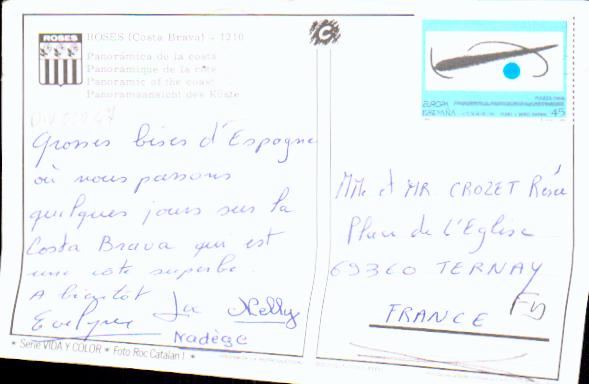 ROSES
ROSES (Costa Brava) - 1210
Panorámica de la costa
Panoramique de la côte
Panoramic of the coast
Panoramaansicht des Küste
Grosses bises d'Espagne
où nous passons
quelques jours sur la
Costa Brava qui est
une côte superbe.
A bientôt
Evelyne
Nelly
Nadège
* Serie VIDA Y COLOR * Foto Roc Catalan I *
C
EUROPA
ESPAÑA 45
Mme et MR. CROZET René
Place de l'Eglise
69360 TERNAY
FRANCE